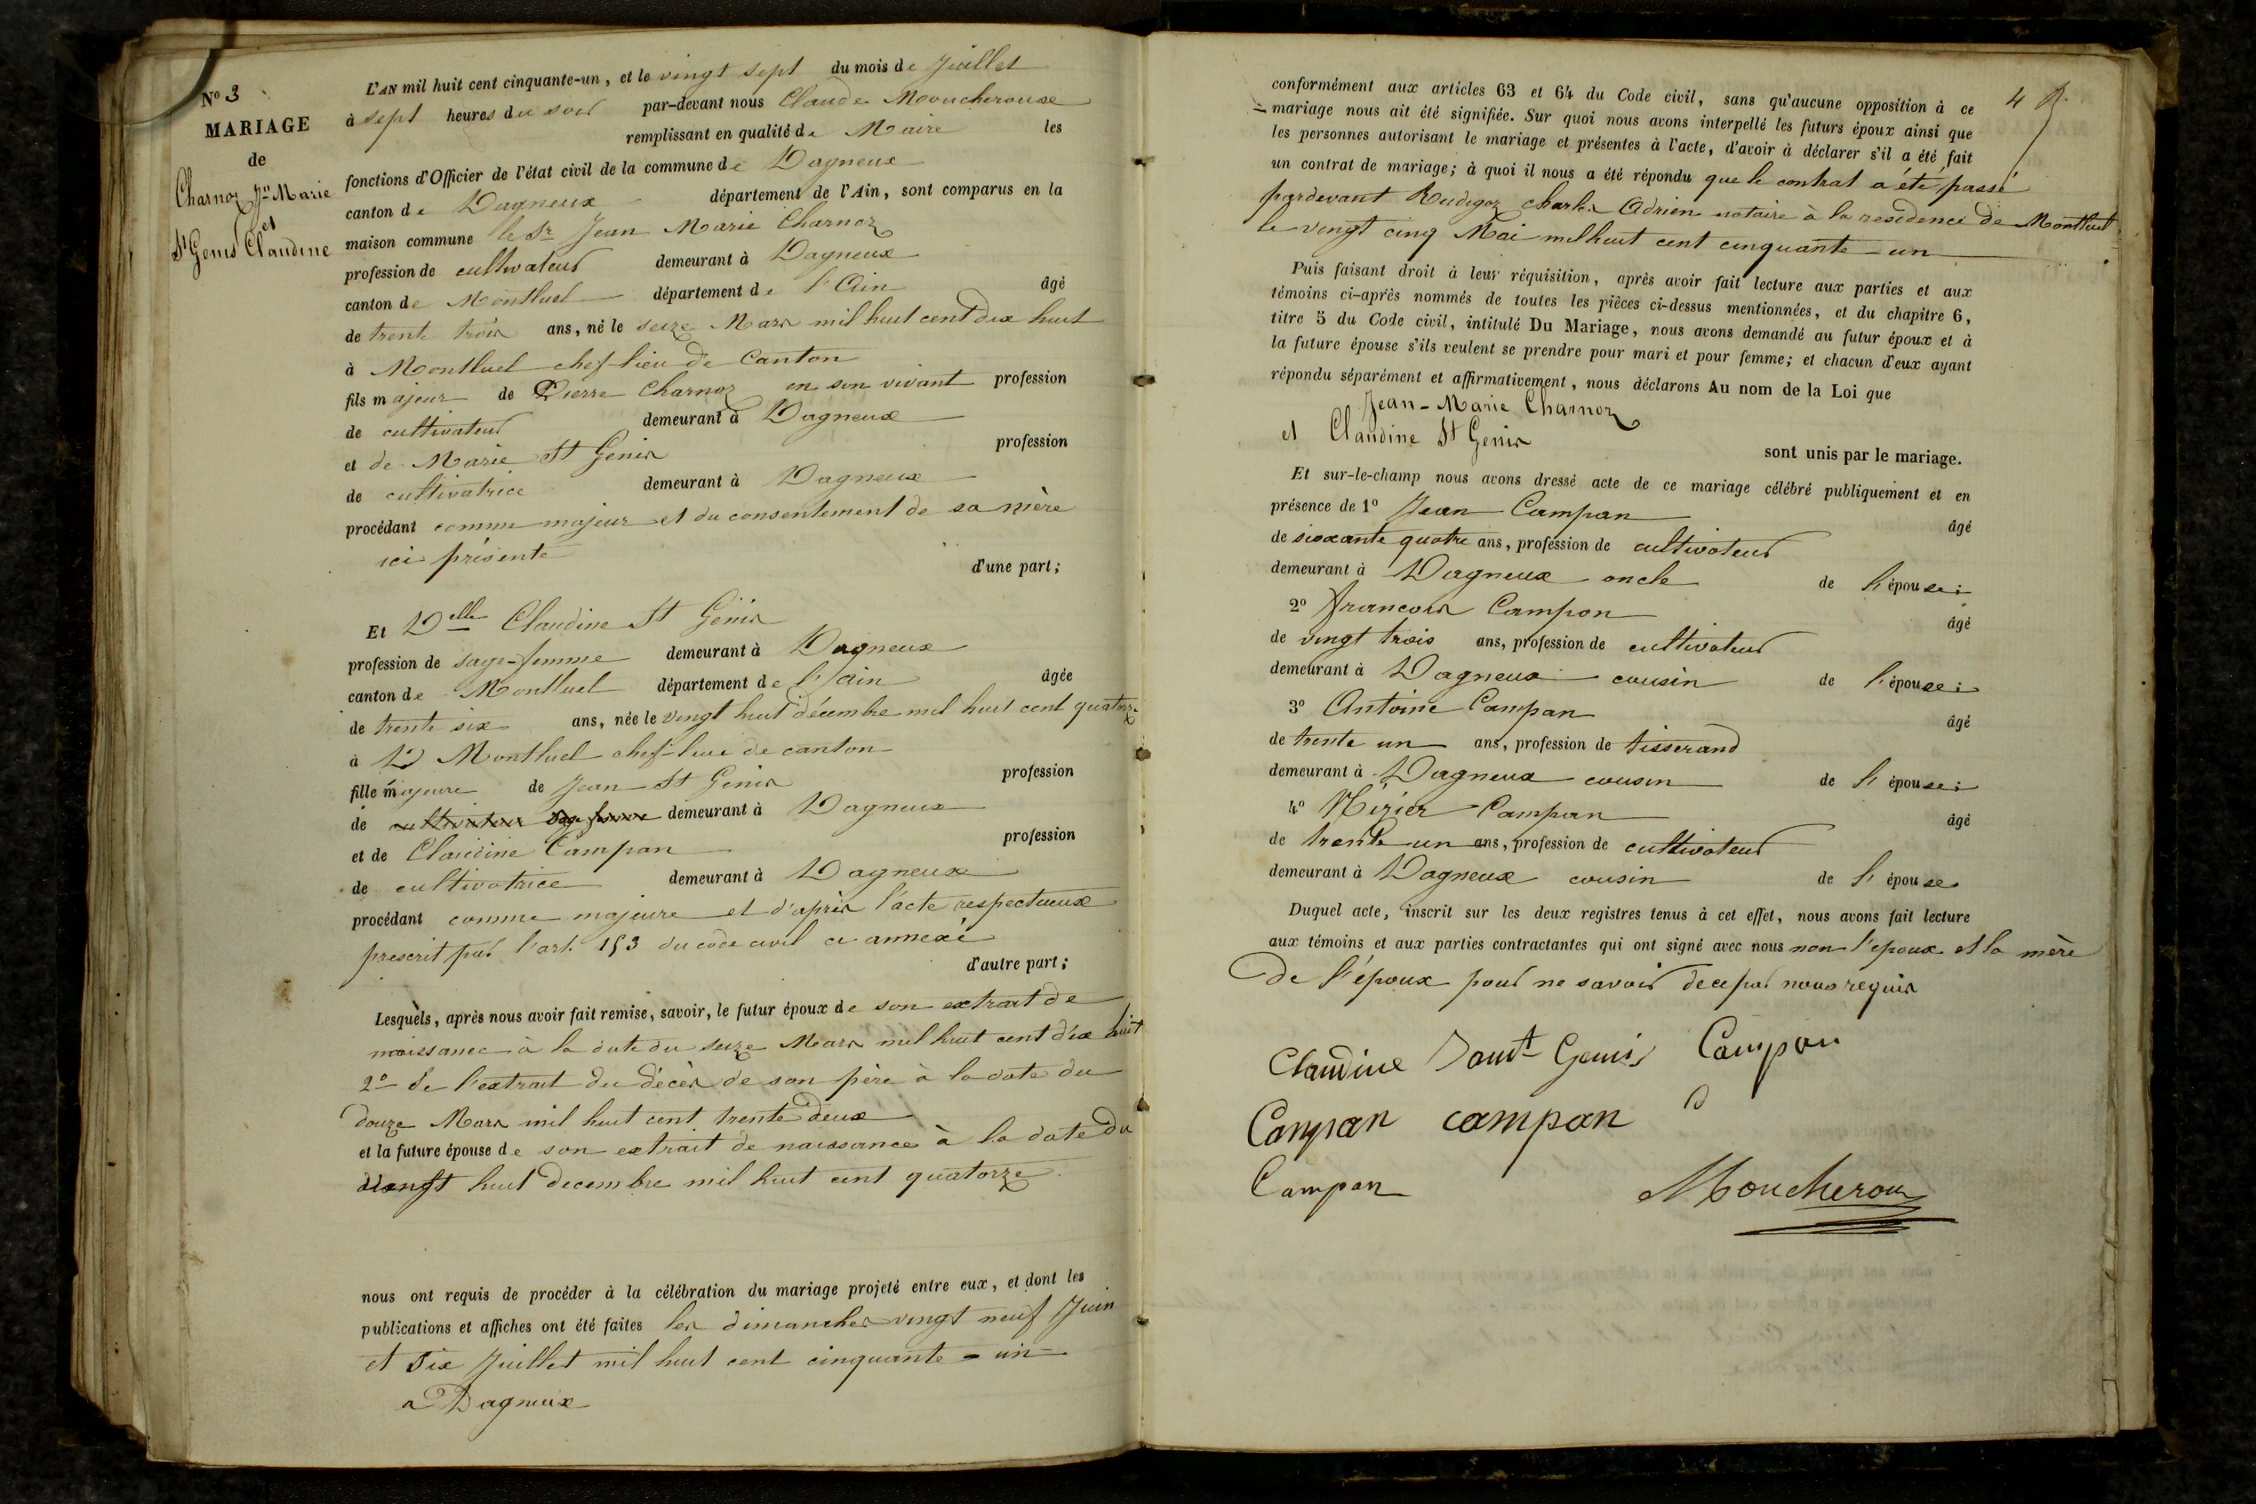 N° 3
MARIAGE
de
Charnoz Jn Marie
et
St Genis Claudine
L'AN mil huit cent cinquante-un, et le vingt sept du mois de Juillet
à sept heures du soir par-devant nous Claude Moucheroux
remplissant en qualité de Maire les
fonctions d'Officier de l'état civil de la commune de Dagneux
canton de Dagneux département de l'Ain, sont comparus en la
maison commune le Sr Jean Marie Charnoz
profession de cultivateur demeurant à Dagneux
canton de Montluel département de l'Ain âgé
de trente trois ans, né le seize Mars mil huit cent dix huit
à Montluel chef lieu de Canton
fils majeur de Pierre Charnoz en son vivant profession
de cultivateur demeurant à Dagneux
et de Marie St Genis profession
de cultivatrice demeurant à Dagneux
procédant comme majeur et du consentement de sa mère
ici présente
d'une part;
Et Delle Claudine St Génis
profession de sage-femme demeurant à Dagneux
canton de Montluel département de l'Ain âgée
de trente six ans, née le vingt huit décembre mil huit cent quatorze
à Montluel chef-lieu de canton
fille majeure de Jean St Genis profession
de cultivateur sage femme demeurant à Dagneux
et de Claudine Campan profession
de cultivatrice demeurant à Dagneux
procédant comme majeure et d'après l'acte respectueux
prescrit par l'art. 153 du code civil ci annexé
d'autre part;
Lesquels, après nous avoir fait remise, savoir, le futur époux de son extrait de
naissance à la date du seize Mars mil huit cent dix huit
2° de l'extrait du décès de son père à la date du
douze Mars mil huit cent trente deux
et la future épouse de son extrait de naissance à la date du
vingt huit decembre mil huit cent quatorze
nous ont requis de procéder à la célébration du mariage projeté entre eux, et dont les
publications et affiches ont été faites les dimanches vingt neuf Juin
et Six Juillet mil huit cent cinquante-un
a Dagneux
4
conformément aux articles 63 et 64 du Code civil, sans qu'aucune opposition à ce
mariage nous ait été signifiée. Sur quoi nous avons interpellé les futurs époux ainsi que
les personnes autorisant le mariage et présentes à l'acte, d'avoir à déclarer s'il a été fait
un contrat de mariage; à quoi il nous a été répondu que le contrat a été passé
pardevant Rudigoz charles Adrien notaire à la residence de Montluel
le vingt cinq Mai mil huit cent cinquante-un
Puis faisant droit à leur réquisition, après avoir fait lecture aux parties et aux
témoins ci-après nommés de toutes les pièces ci-dessus mentionnées, et du chapitre 6,
titre 5 du Code civil, intitulé Du Mariage, nous avons demandé au futur époux et à
la future épouse s'ils veulent se prendre pour mari et pour femme; et chacun d'eux ayant
répondu séparément et affirmativement, nous déclarons Au nom de la Loi que
Jean-Marie Charnoz
et Claudine St Genis
sont unis par le mariage.
Et sur-le-champ nous avons dressé acte de ce mariage célébré publiquement et en
présence de 1° Jean Campan âgé
de sioxante quatre ans, profession de cultivateur
demeurant à Dagneux oncle de l'épouse;
2° francois Campon âgé
de vingt trois ans, profession de cultivateur
demeurant à Dagneux cousin de l'épouse;
3° Antoine Campan âgé
de trente un ans, profession de tisserand
demeurant à Dagneux cousin de l'épouse;
4° Nizier Campan âgé
de trente un ans, profession de cultivateur
demeurant à Dagneux cousin de l'épouse
Duquel acte, inscrit sur les deux registres tenus à cet effet, nous avons fait lecture
aux témoins et aux parties contractantes qui ont signé avec nous non l'epoux et la mère
de l'époux pour ne savoir de ce par nous requis
Claudine Saint Genis Campan
Campan campan
Campan Moucheroux